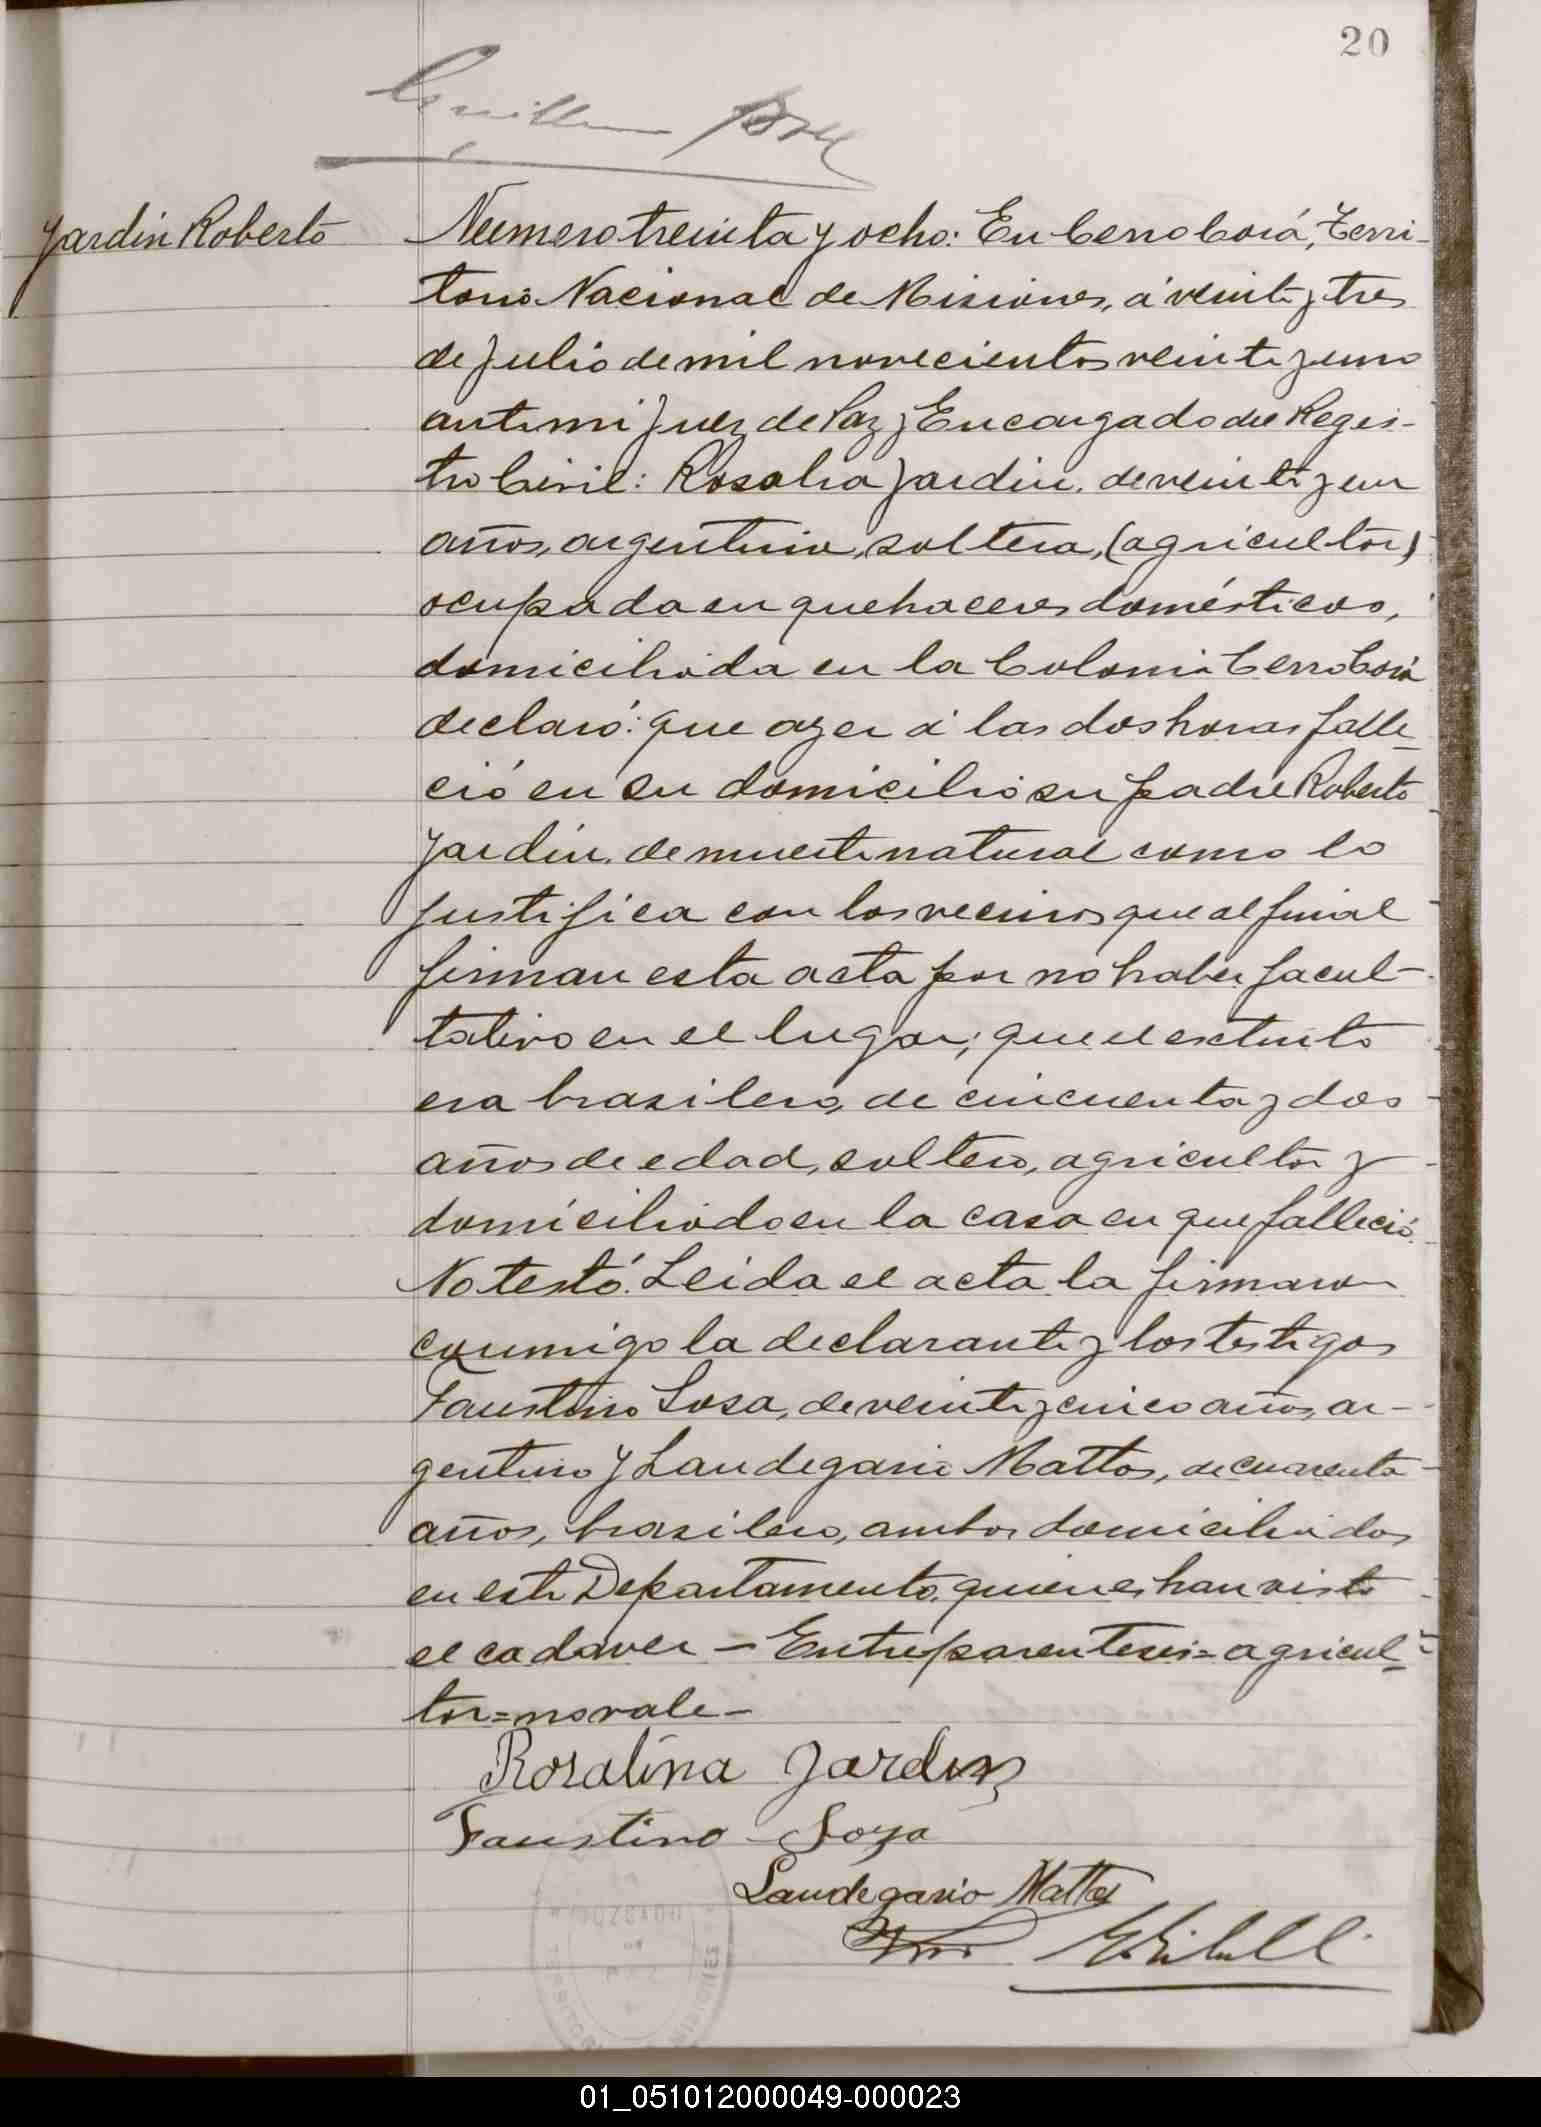 20
Jardin Roberto
Numero treinta y ocho: En Cerro Corá, Terri-
torio Nacional de Misiones, á veinte y tres
de Julio de mil novecientos veinte y uno
ante mi Juez de Paz y Encargado del Regis-
tro Civil: Rosalia Jardin, de veinte y un
años, argentina, soltera, (agricultor)
ocupada en quehaceres domésticos,
domiciliada en la Colonia Cerro Corá
declaró: que ayer á las dos horas falle-
ció en su domicilio su padre Roberto
Jardin, de muerte natural como lo
justifica con los vecinos que al final
firman esta acta por no haber facul-
tativo en el lugar; que el extinto
era brasilero, de cincuenta y dos
años de edad, soltero, agricultor y
domiciliado en la casa en que falleció.
No testó. Leida el acta la firmaron
conmigo la declarante y los testigos
Faustino Sosa, de veinte y cinco años, ar-
gentino y Laudegario Mattos, de cuarenta
años, brasilero, ambos domiciliados
en este Departamento, quienes han visto
el cadaver — Entreparentesis = agricul-
tor = no vale —
Rosalina Jardin
Faustino Soza
Laudegario Mattos
JUZGADO
DE
PAZ
MISIONES
01_051012000049-000023